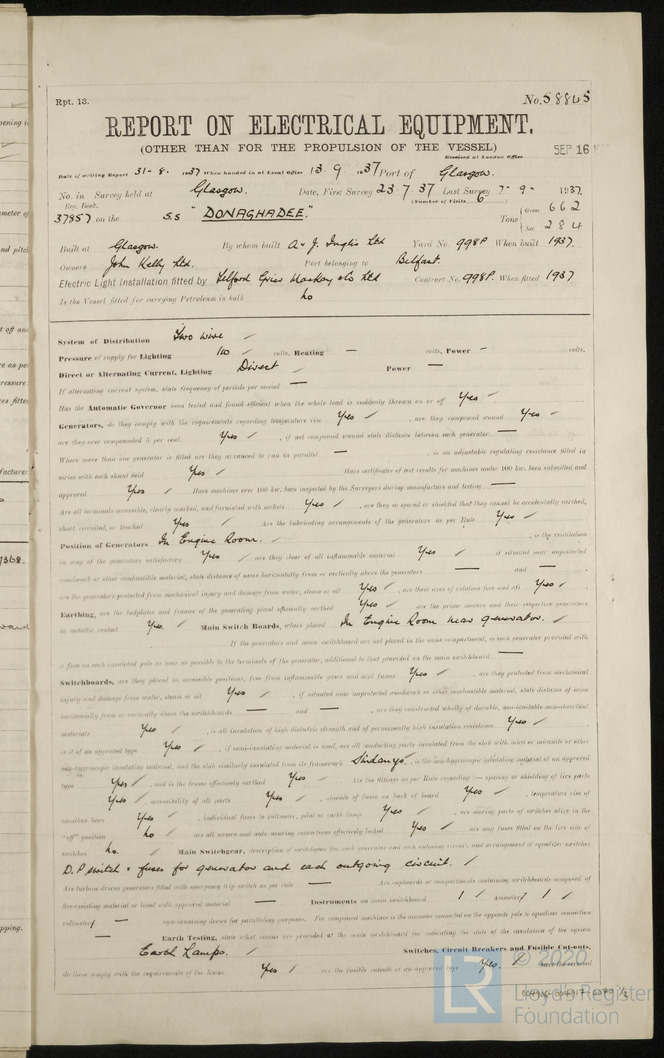 Rpt. 13.
No. 58845
REPORT ON ELECTRICAL EQUIPMENT.
(OTHER THAN FOR THE PROPULSION OF THE VESSEL)
Received at London Office
SEP 16
Date of writing Report 31- 8. 1937 When handed in at Local Office 13. 9. 1937 Port of Glasgow.
No. in Survey held at Glasgow. Date, First Survey 23. 7. 37 Last Survey 7- 9- 1937.
Reg. Book. (Number of Visits 6
37857 on the S.S "DONAGHADEE."
Tons { Gross 662
Net 284
Built at Glasgow. By whom built A & J. Inglis Ltd Yard No. 998P. When built 1937.
Owners John Kelly Ltd. Port belonging to Belfast.
Electric Light Installation fitted by Telford Grier Mackay & Co Ltd Contract No. 998P. When fitted 1937
Is the Vessel fitted for carrying Petroleum in bulk no
System of Distribution Two wire
Pressure of supply for Lighting 110 volts, Heating — volts, Power — volts.
Direct or Alternating Current, Lighting Direct Power —
If alternating current system, state frequency of periods per second —
Has the Automatic Governor been tested and found efficient when the whole load is suddenly thrown on or off Yes
Generators, do they comply with the requirements regarding temperature rise Yes , are they compound wound Yes
are they over compounded 5 per cent. Yes , if not compound wound state distance between each generator —
Where more than one generator is fitted are they arranged to run in parallel — , is an adjustable regulating resistance fitted in
series with each shunt field Yes Have certificates of test results for machines under 100 kw. been submitted and
approved Yes Have machines over 100 kw. been inspected by the Surveyors during manufacture and testing —
Are all terminals accessible, clearly marked, and furnished with sockets Yes , are they so spaced or shielded that they cannot be accidentally earthed,
short circuited, or touched Yes Are the lubricating arrangements of the generators as per Rule Yes
Position of Generators In Engine Room. , is the ventilation
in way of the generators satisfactory Yes , are they clear of all inflammable material Yes , if situated near unprotected
woodwork or other combustible material, state distance of same horizontally from or vertically above the generators — and —
are the generators protected from mechanical injury and damage from water, steam or oil Yes , are their axes of rotation fore and aft Yes
Earthing, are the bedplates and frames of the generating plant efficiently earthed Yes are the prime movers and their respective generators
in metallic contact Yes. Main Switch Boards, where placed In Engine Room near generator.
If the generators and main switchboard are not placed in the same compartment, is each generator provided with
a fuse on each insulated pole as near as possible to the terminals of the generator, additional to that provided on the main switchboard —
Switchboards, are they placed in accessible positions, free from inflammable gases and acid fumes Yes , are they protected from mechanical
injury and damage from water, steam or oil Yes , if situated near unprotected woodwork or other combustible material, state distance of same
horizontally from or vertically above the switchboards — and — , are they constructed wholly of durable, non-ignitable non-absorbent
materials Yes , is all insulation of high dielectric strength and of permanently high insulation resistance Yes
is it of an approved type Yes , if semi-insulating material is used, are all conducting parts insulated from the slab with mica or micanite or other
non-hygroscopic insulating material, and the slab similarly insulated from its framework Sindanyo. , is the non-hygroscopic insulating material of an approved
type Yes , and is the frame effectively earthed Yes Are the fittings as per Rule regarding:— spacing or shielding of live parts
Yes , accessibility of all parts Yes , absence of fuses on back of board Yes , temperature rise of
omnibus bars Yes , individual fuses to voltmeter, pilot or earth lamp Yes , are moving parts of switches alive in the
"off" position no are all screws and nuts securing connections effectively locked Yes are any fuses fitted on the live side of
switches no. Main Switchgear, description of switchgear for each generator and each outgoing circuit, and arrangement of equalizer switches
D.P switch & fuses for generator and each outgoing circuit.
Are turbine driven generators fitted with emergency trip switch as per rule — Are cupboards or compartments containing switchboards composed of
fire-resisting material or lined with approved material — Instruments on main switchboard 1 ammeter 1
voltmeter — synchronising device for paralleling purposes. For compound machines is the ammeter connected on the opposite pole to equaliser connection
— Earth Testing, state what means are provided at the main switchboard for indicating the state of the insulation of the system
Earth Lamps. Switches, Circuit Breakers and Fusible Cut-outs,
do these comply with the requirements of the Rules Yes are the fusible cutouts of an approved type Yes.
© 2020
LR Lloyd's Register
Foundation